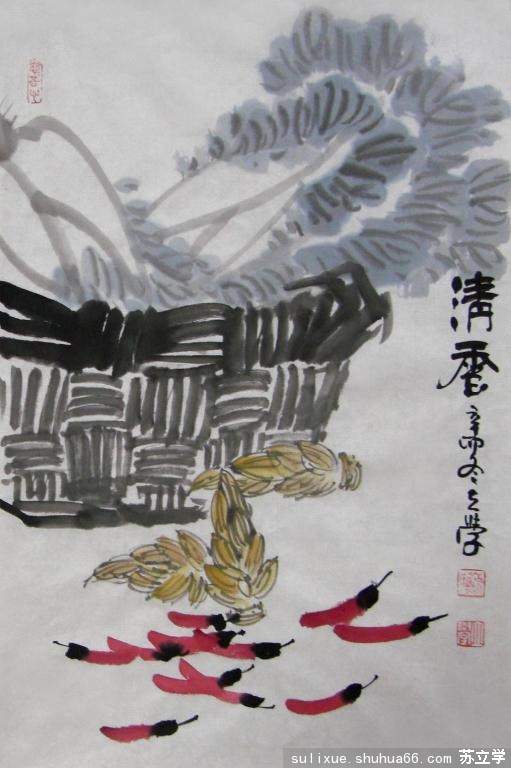 清
辛卯冬立学
sulixue.shuhua66.com 苏立学